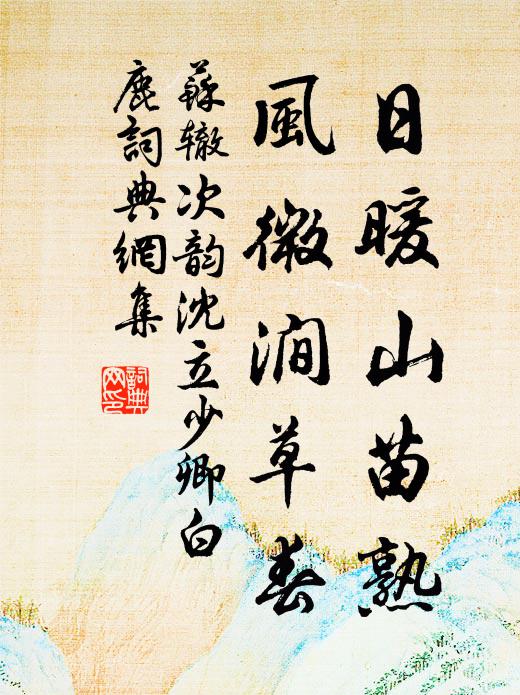 日暖山苗熟
風微澗草春
蘇轍次韵沈立少卿白
鹿詞典網集
詞典
网印